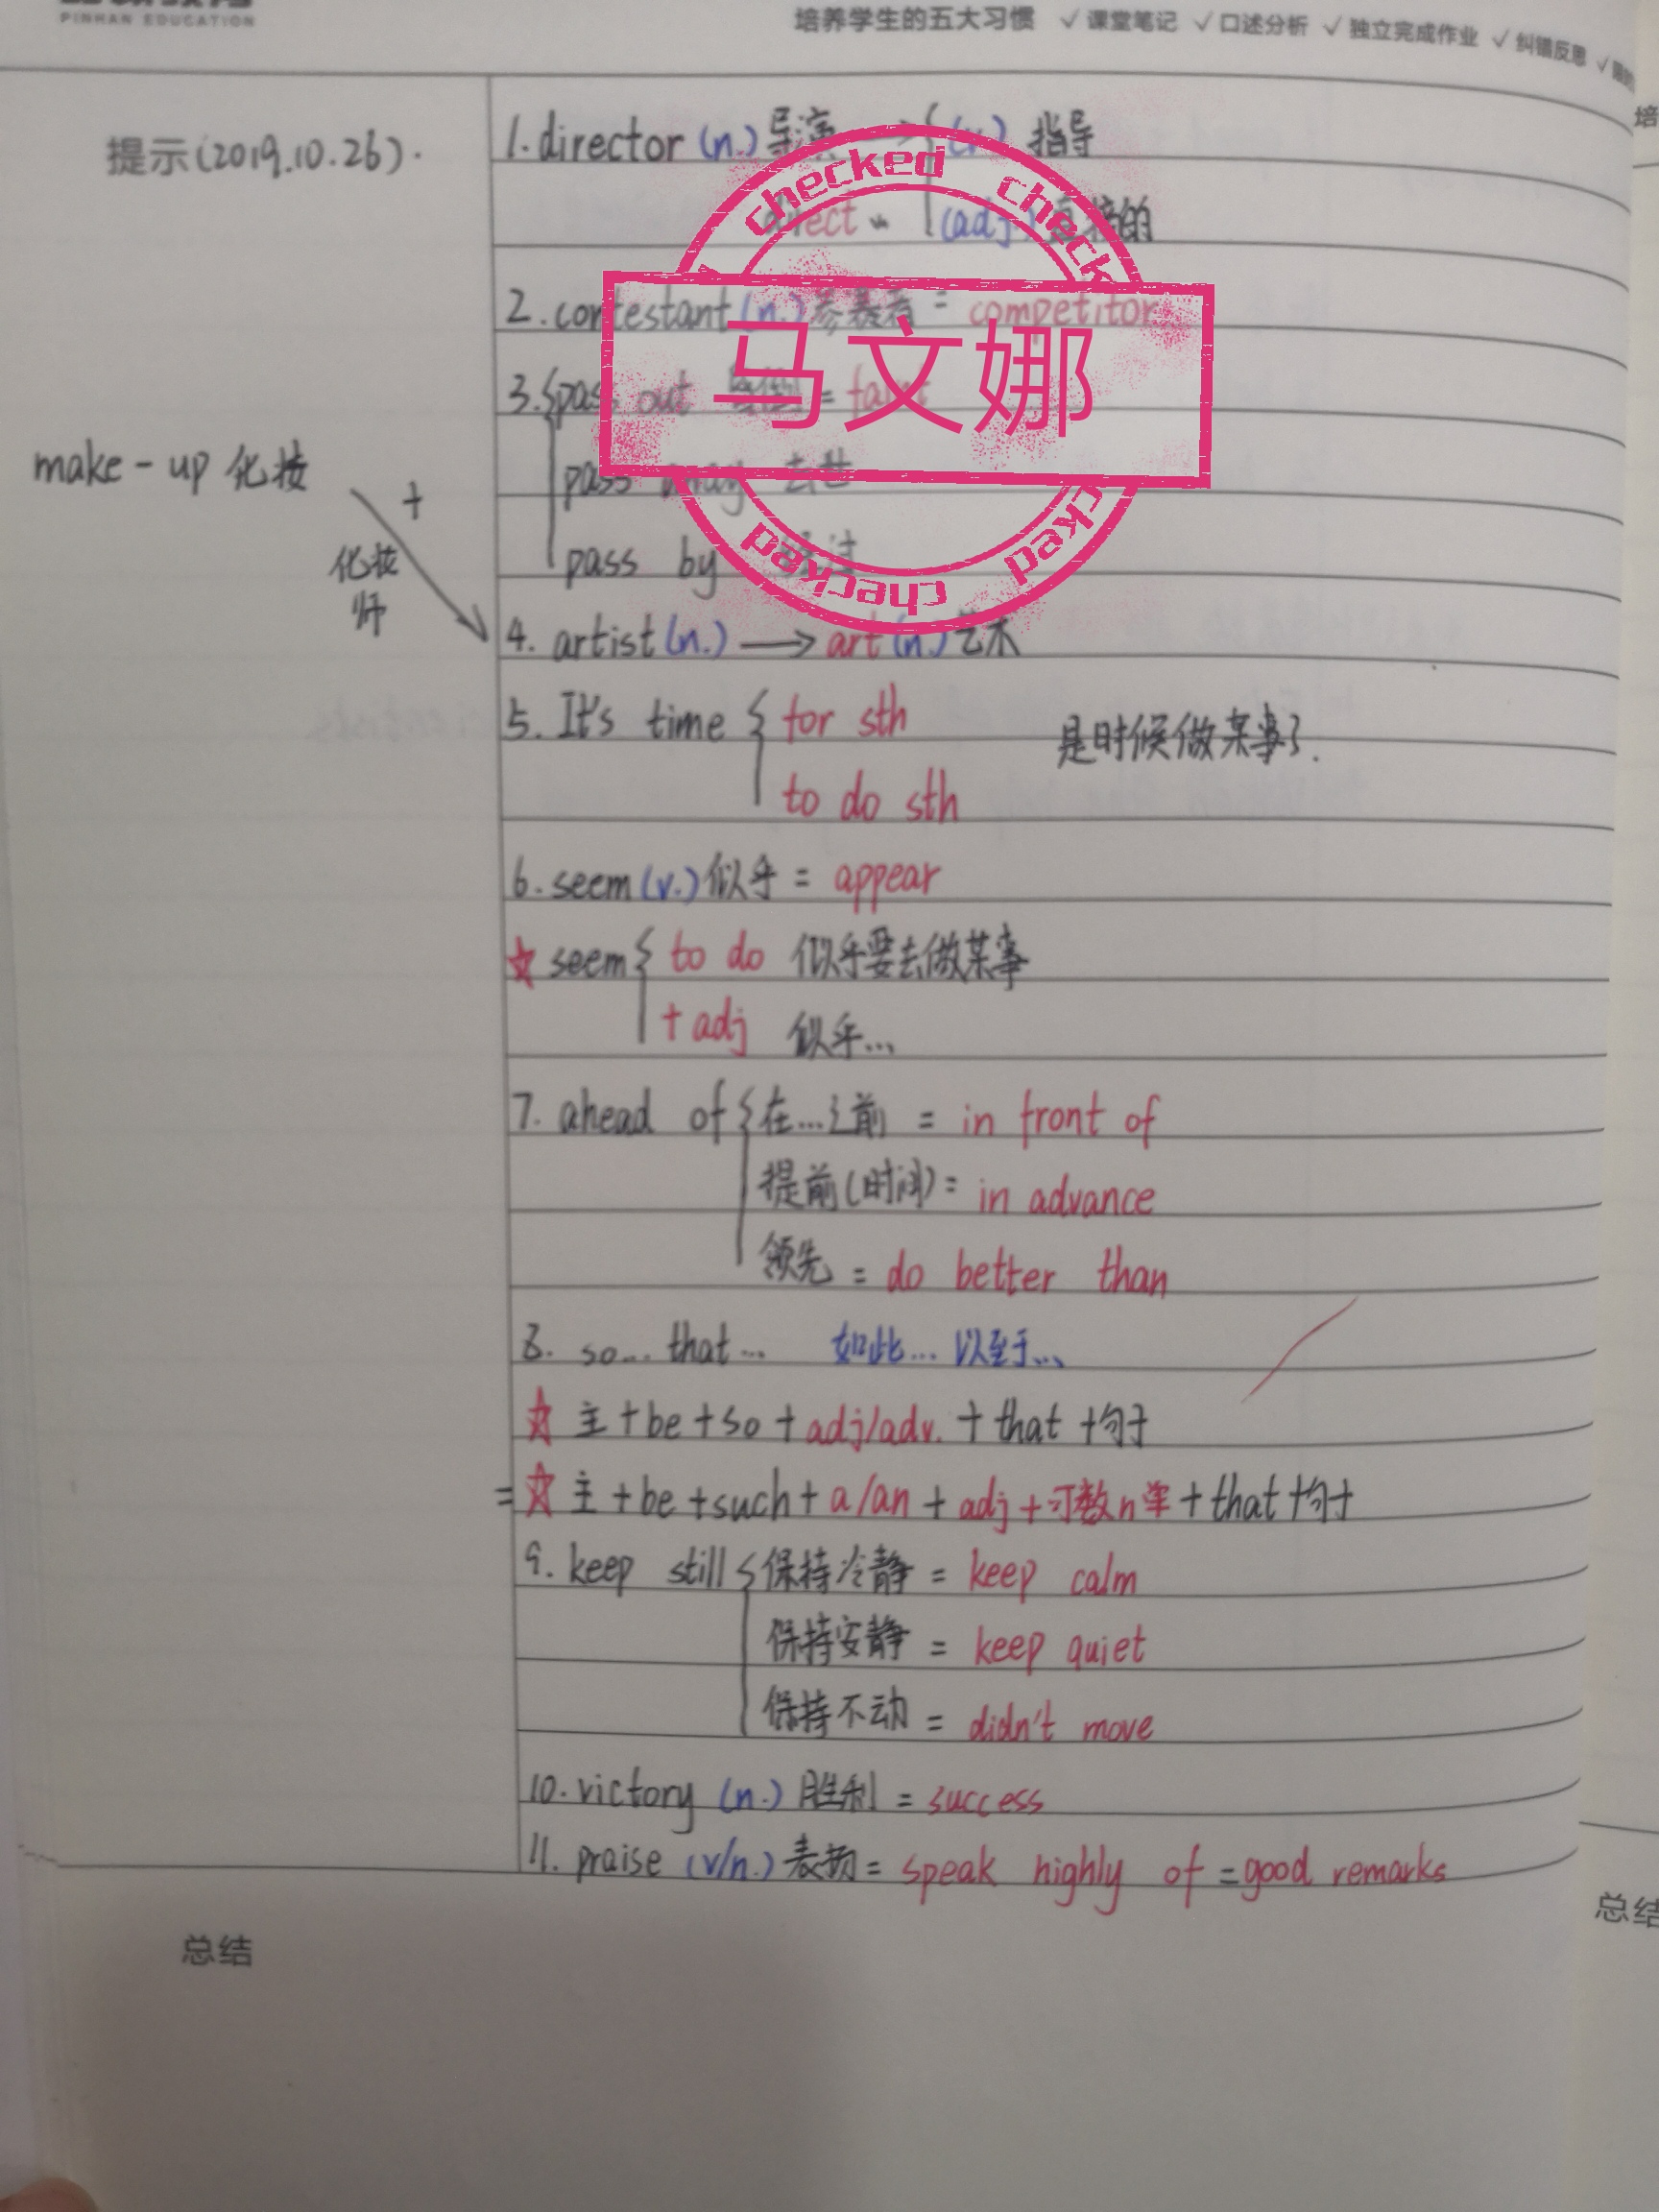 PINHAN EDUCATION
培养学生的五大习惯 ✓课堂笔记 ✓口述分析 ✓独立完成作业 ✓纠错反思 ✓
提示(2019.10.26).
1. director (n.) 导演 → { (v.) 指导
direct (adj.) 直接的
2. contestant (n.) 参赛者 = competitor
3. { pass out 昏倒 = faint
pass away 去世
pass by 经过
make-up 化妆
+
化妆
师
4. artist (n.) → art (n.) 艺术
5. It's time { for sth
to do sth
是时候做某事了.
6. seem (v.) 似乎 = appear
☆ seem { to do 似乎要去做某事
+ adj 似乎...
7. ahead of { 在...之前 = in front of
提前(时间) = in advance
领先 = do better than
8. so... that... 如此... 以至于...
☆ 主 + be + so + adj/adv. + that + 句子
= ☆ 主 + be + such + a/an + adj + 可数n单 + that + 句子
9. keep still { 保持冷静 = keep calm
保持安静 = keep quiet
保持不动 = didn't move
10. victory (n.) 胜利 = success
11. praise (v/n.) 表扬 = speak highly of = good remarks
总结
checked
checked
马文娜
checked
checked
checked
培
总结